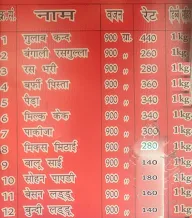 नाम वजन रेट
1 गुलाब कन्द 900 ग्रा. 440 1kg
2 बंगाली रसगुल्ला 900 ,, 260 1kg
3 रस भरी 900 ,, 280 1kg
4 बर्फी पिस्ता 900 ,, 360 1kg
5 पेड़ा 900 ,, 340 1kg
6 मिल्क केक 900 ,, 840 1kg
7 पाकीजा 900 ,, 300 1kg
8 मिक्स मिठाई 900 ,, 280 1kg
9 बालू साई 900 ,, 140 1kg
10 सोहन पापडी 900 ,, 180 1kg
11 बेसन लड्डू 900 ,, 160 1kg
12 बुन्दी लड्डू 900 ,, 140 1kg